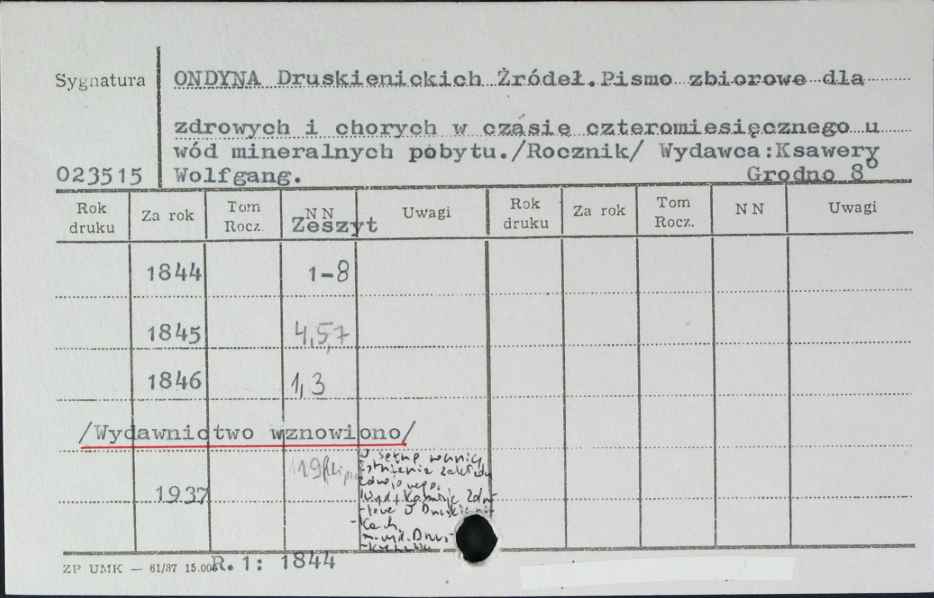 Sygnatura
ONDYNA Druskienickich Źródeł.Pismo zbiorowe dla
zdrowych i chorych w czasie czteromiesięcznego u
wód mineralnych pobytu./Rocznik/ Wydawca:Ksawery
023515 Wolfgang. Grodno 8°
Rok druku Za rok Tom Rocz. NN Zeszyt Uwagi Rok druku Za rok Tom Rocz. NN Uwagi
1844 1-8
1845 4,5,7
1846 1,3
/Wydawnictwo wznowiono/
1937
W setną rocznicę
istnienia zakładu
zdrojowego.
ZP UMK — 61/87 15.000 R. 1: 1844